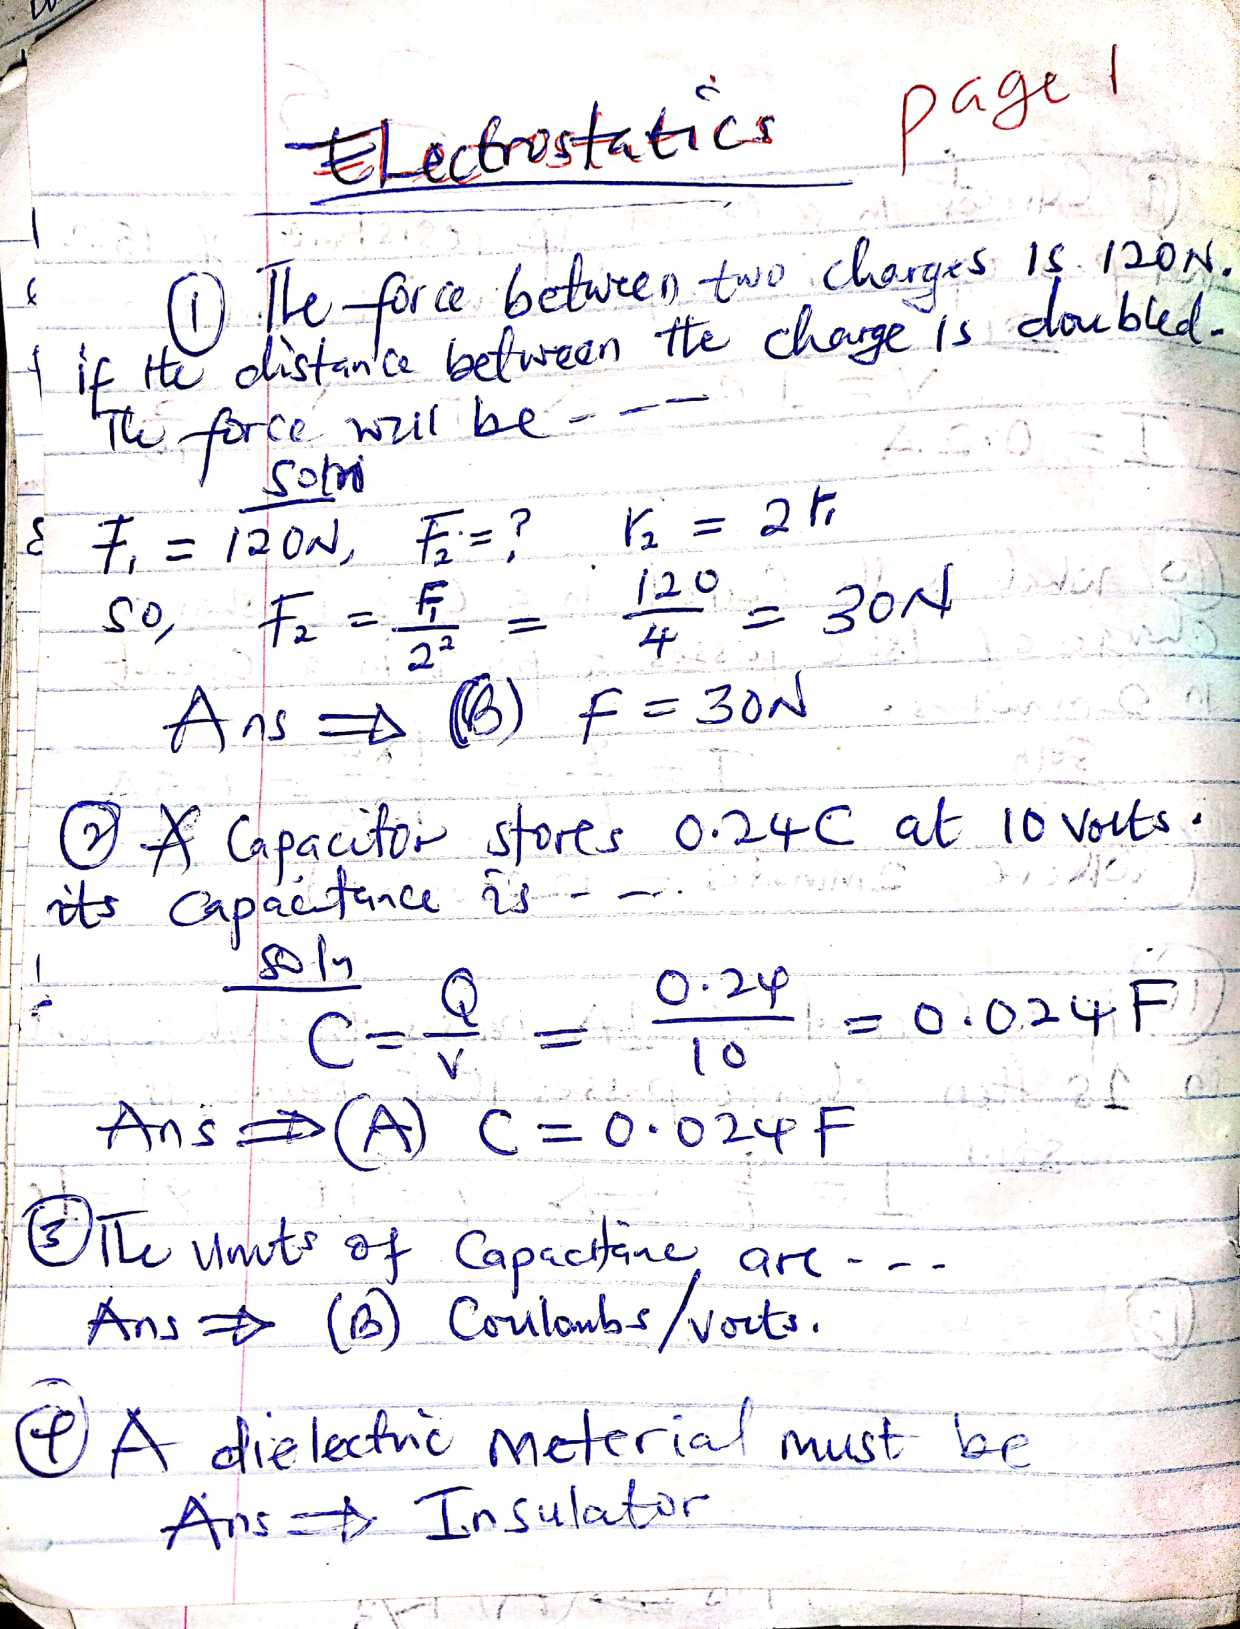 Electrostatics page 1
① The force between two charges is 120N.
if the distance between the charge is doubled-
The force will be - - -
soln
F₁ = 120N, F₂ = ? r₂ = 2r₁
so, F₂ = F₁/2² = 120/4 = 30N
Ans ⇒ (B) F = 30N
② A Capacitor stores 0.24C at 10 volts.
its capacitance is - - -
soln
C = Q/V = 0.24/10 = 0.024F
Ans ⇒ (A) C = 0.024F
③ The Units of Capacitance are - - -
Ans ⇒ (B) Coulombs/volts.
④ A dielectric meterial must be
Ans ⇒ Insulator